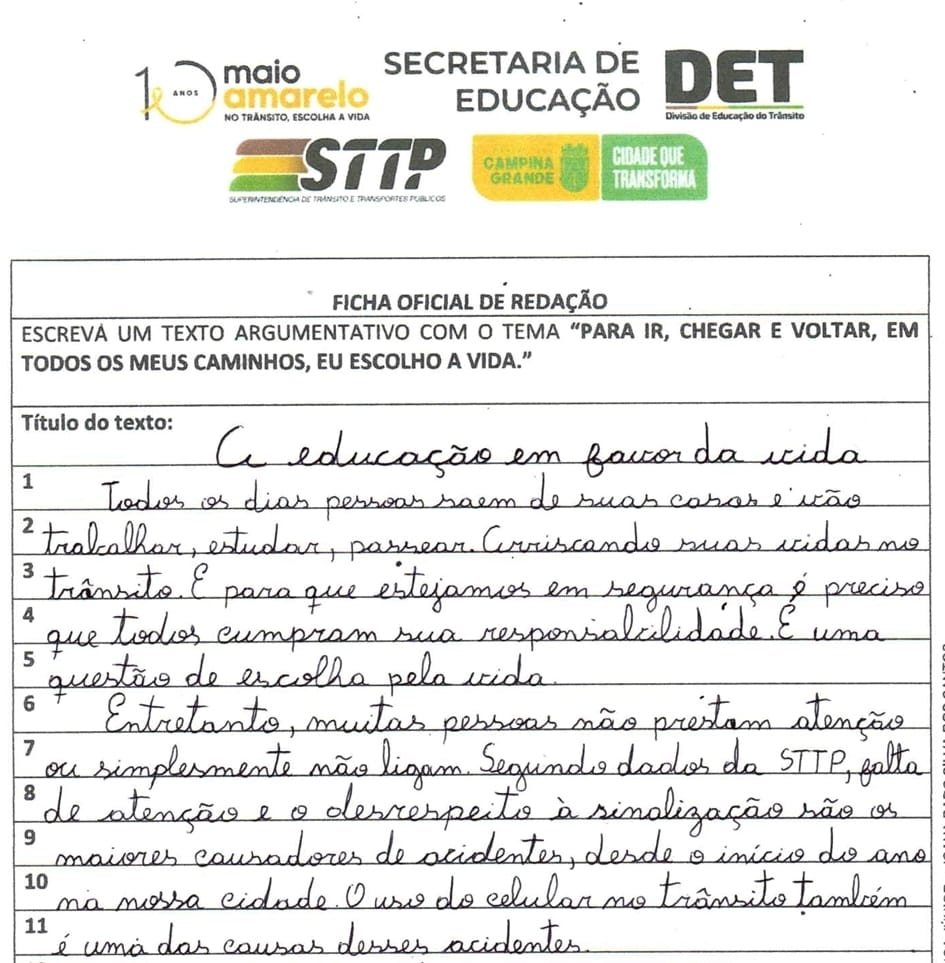 10 ANOS
maio
amarelo
NO TRÂNSITO, ESCOLHA A VIDA
SECRETARIA DE
EDUCAÇÃO
DET
Divisão de Educação do Trânsito
STTP
SUPERINTENDÊNCIA DE TRÂNSITO E TRANSPORTES PÚBLICOS
CAMPINA
GRANDE
CIDADE QUE
TRANSFORMA
FICHA OFICIAL DE REDAÇÃO
ESCREVA UM TEXTO ARGUMENTATIVO COM O TEMA “PARA IR, CHEGAR E VOLTAR, EM
TODOS OS MEUS CAMINHOS, EU ESCOLHO A VIDA.”
Título do texto:
A educação em favor da vida
1 Todos os dias pessoas saem de suas casas e vão
2 trabalhar, estudar, passear. Arriscando suas vidas no
3 trânsito. E para que estejamos em segurança é preciso
4 que todos cumpram sua responsabilidade. É uma
5 questão de escolha pela vida.
6 Entretanto, muitas pessoas não prestam atenção
7 ou simplesmente não ligam. Segundo dados da STTP, falta
8 de atenção e o desrespeito à sinalização são os
9 maiores causadores de acidentes, desde o início do ano
10 na nossa cidade. O uso do celular no trânsito também
11 é uma das causas desses acidentes.